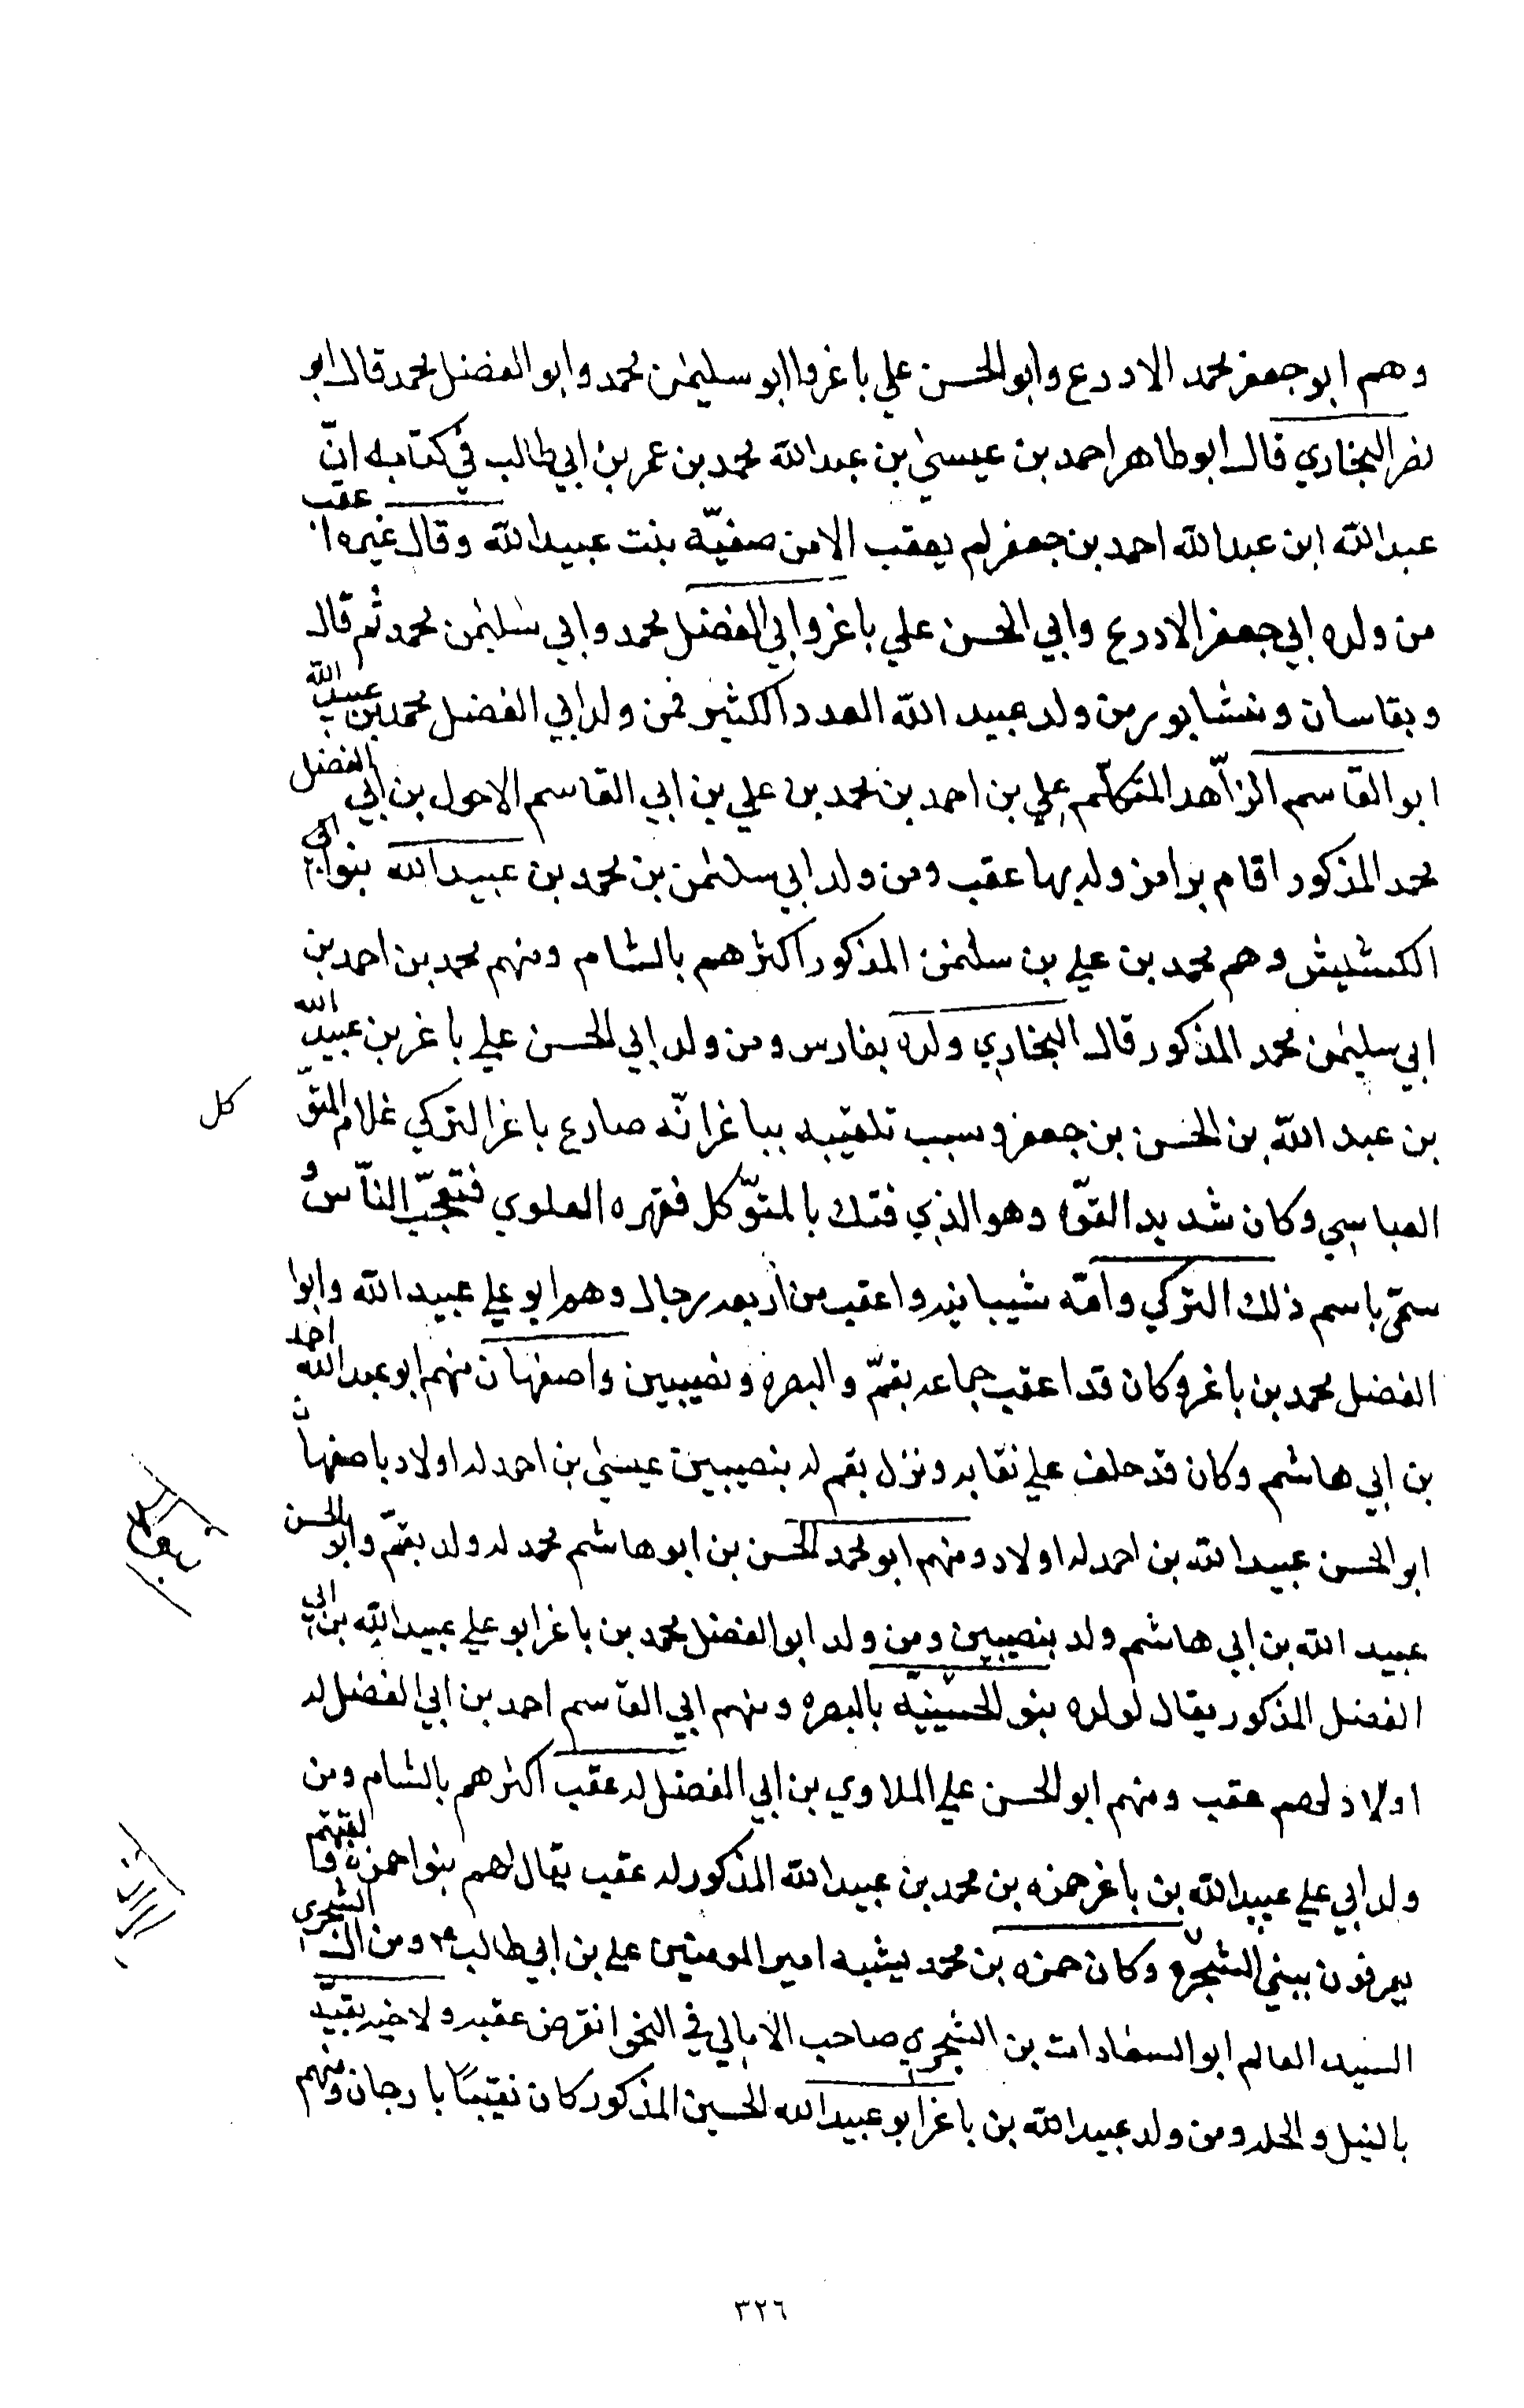 وهم ابو جعفر محمد الادرع وابو الحسن علي باغر واابو سليمٰن محمد وابو الفضل محمد قال ابو
نصر البخاري قال ابو طاهر احمد بن عيسىٰ بن عبدالله محمد بن عمر بن ابي طالب في كتابه انّ
عبدالله ابن عبدالله احمد بن جعفر لم يعقب الا من صفيّه بنت عبيدالله وقال غيره ا عقب
من ولده ابي جعفر الادرع وابي الحسن علي باغر وابي الفضل محمد وابي سليمٰن محمد ثم قال
وبقاسان ونشابور من ولد عبيد الله العدد الكثير فمن ولد ابي الفضل محمد بن عبيد الله
ابو القاسم الزاهد المتكلّم علي بن احمد بن محمد بن علي بن ابي القاسم الاحول بن ابي الفضل
محمد المذكور اقام بها عقب ومن ولد ابي سليمٰن بن محمد بن عبيدالله بنوا
الكشيش وهم محمد بن علي بن سليمٰن المذكور اكثرهم بالشام ومنهم محمد بن احمد بن
ابي سليمٰن محمد المذكور قال البخاري ولده بفارس ومن ولد ابي الحسن علي باغر بن عبيد الله
بن عبد الله بن الحسن بن جعفر وسبب تلقيبه بباغر انّه صارع باغر التركي غلام المتوّ كل
العباسي وكان شديد القوّه وهو الذي فتك بالمتوّكل فقهره العلوي فتعجّب النّاسُ
سمّي باسم ذلك التركي وامّه شيبانيه واعقب من اربعه رجال وهم ابو علي عبيدالله وابوا
الفضل محمد بن باغر وكان قد اعقب جماعه بقمّ والبصره ونصيبين واصفهان منهم ابو عبدالله احمد
بن ابي هاشم وكان قد حلف علي نقابه ونزل بقم له بنصيبين عيسىٰ بن احمد له اولاد باصفهان
ابو الحسن عبيدالله بن احمد له اولاد ومنهم ابو محمد الحسن بن ابو هاشم محمد له ولد بقمّ وابو الحسن
عبيد الله بن ابي هاشم ولد بنصيبين ومن ولد ابو الفضل محمد بن باغر ابو علي عبيدالله بن ابي
الفضل المذكور يقال لولده بنو الحسينيّه بالبصره ومنهم ابي القاسم احمد بن ابي الفضل له
اولاد لهم عقب ومنهم ابو الحسن علي الملاوي بن ابي الفضل له عقب اكثرهم بالشام ومن
ولد ابي علي عبيدالله بن باغر حمزه بن محمد بن عبيدالله المذكور له عقب يقال لهم بنوا حمزه
يعرفون ببني الشجري وكان حمزه بن محمد يشبه امير المومنين علي بن ابي طالب ومن الشجري
السيد العالم ابو السعادات بن الشجري صاحب الامالي في النحو انقرض عقبه ولاخيه بقيّه
بالنيل والحله ومن ولد عبيدالله بن باغر ابو عبيدالله الحسين المذكور كان نقيبًا بارجان ومنهم
٣٢٦